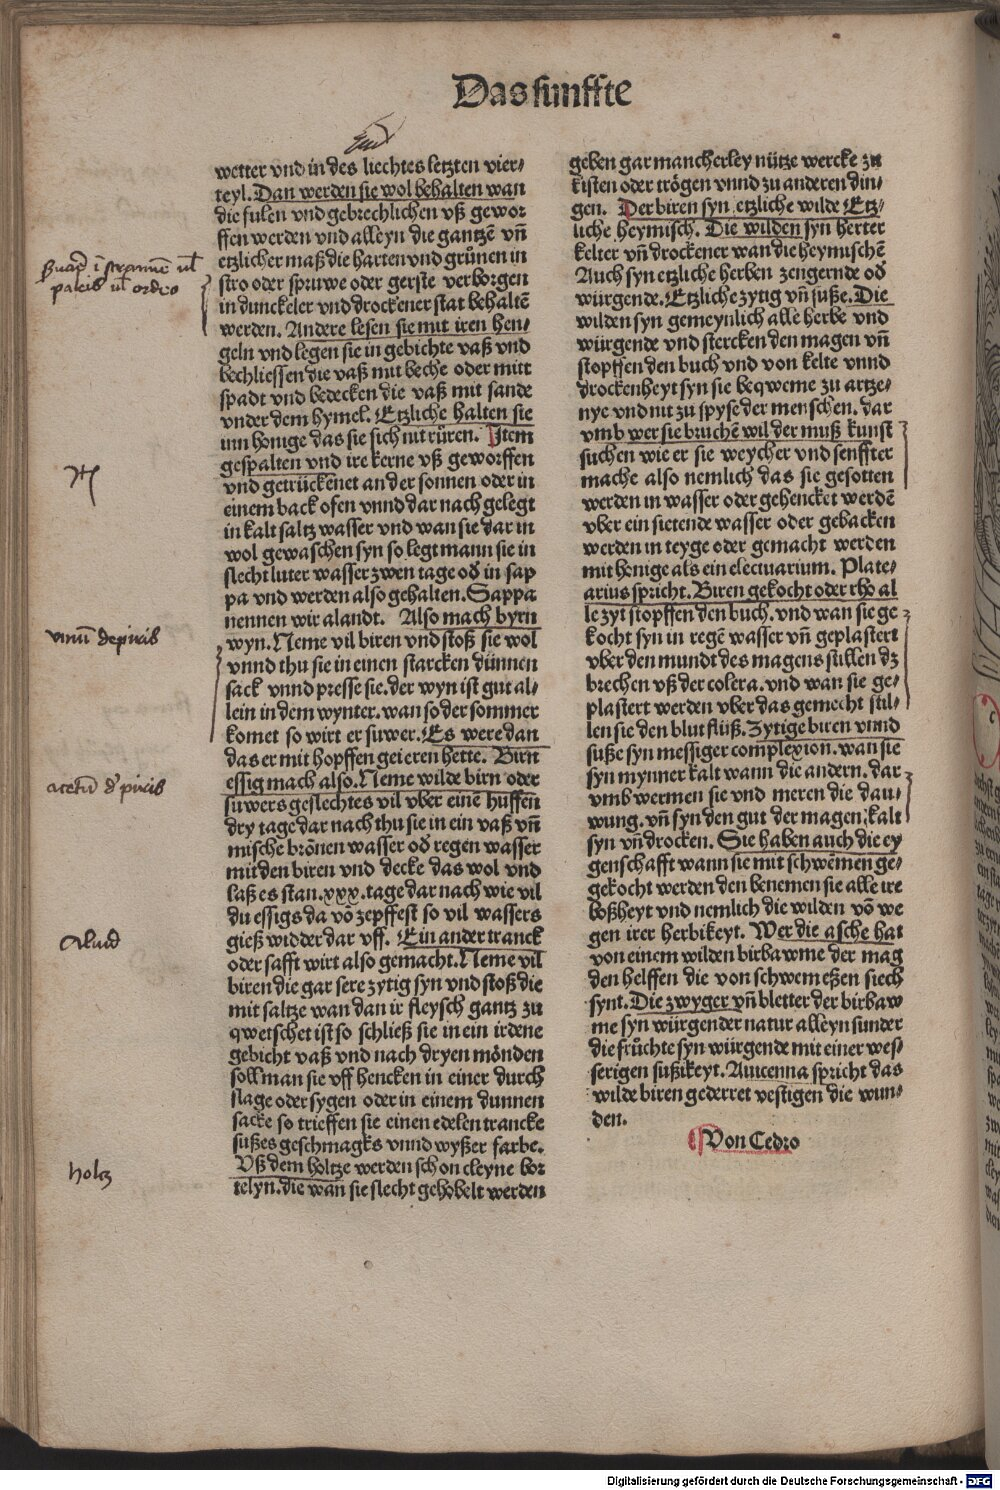 Das funffte
wetter vnd in des liechtes letzten vier⸗
teyl. Dan werden sie wol behalten wan
die fulen vnd gebrechlichen vß gewor
ffen werden vnd alleyn die gantzē vñ
etzlicher maß die harten vnd grůnen in
stro oder spruwe oder gerste verborgen
in dunckeler vnd drockener stat behaltē
werden. Andere lesen sie mit iren hen⸗
geln vnd legen sie in gebichte vaß vnd
bechliessen die vaß mit beche oder mitt
spadt vnd bedecken die vaß mit sande
vnder dem hymel. Etzliche halten sie
inn honige das sie sich nit růren. Item
gespalten vnd ire kerne vß geworffen
vnd getrückenet an der sonnen oder in
einem back ofen vnnd dar nach gelegt
in kalt saltz wasser vnd wan sie dar in
wol gewaschen syn so legt mann sie in
slecht luter wasser zwen tage od in sap
pa vnd werden also gehalten. Sappa
nennen wir alandt. Also mach byrn
wyn. Neme vil biren vnd stoß sie wol
vnnd thu sie in einen starcken dünnen
sack vnnd presse sie. der wyn ist gut al⸗
lein in dem wynter. wan so der sommer
komet so wirt er suwer. Es were dan
das er mit hopffen geieren hette. Birn
essig mach also. Neme wilde birn oder
suwers geslechtes vil vber einē huffen
dry tage dar nach thu sie in ein vaß vñ
mische brönen wasser od regen wasser
mit den biren vnd decke das wol vnd
laß es stan. xxx. tage dar nach wie vil
du essigs da vō zepffest so vil wassers
gieß widder dar vff. Ein ander tranck
oder safft wirt also gemacht. Neme vil
biren die gar sere zytig syn vnd stoß die
mit saltze wan dan ir fleysch gantz zu
qwetschet ist so schließ sie in ein irdene
gebicht vaß vnd nach dryen mönden
soll man sie vff hencken in einer durch
slage oder sygen oder in einem dunnen
sacke so trieffen sie einen edelen trancke
sußes geschmagks vnnd wyßer farbe.
Vß dem höltze werden schon cleyne bor
telyn. die wan sie slecht gehobelt werden
geben gar mancherley nütze wercke zu
kisten oder trögen vnnd zu anderen din⸗
gen. Der biren syn etzliche wilde Etz⸗
liche heymisch. Die wilden syn herter
kelter vñ drockener wan die heymischē
Auch syn etzliche herben zengernde od
würgende. Etzliche zytig vñ suße. Die
wilden syn gemeynlich alle herbe vnd
würgende vnd stercken den magen vñ
stopffen den buch vnd von kelte vnnd
drockenheyt syn sie beqweme zu artze⸗
nye vnd nit zu spyse der menschen. dar
vmb wer sie bruchē wil der muß kunst
suchen wie er sie weycher vnd senffter
mache also nemlich das sie gesotten
werden in wasser oder gehencket werdē
vber ein sietende wasser oder gebacken
werden in teyge oder gemacht werden
mit honige als ein electuarium. Plate⸗
arius spricht. Biren gekocht oder rho al
le zyt stopffen den buch. vnd wan sie ge⸗
kocht syn in regē wasser vñ geplastert
vber den mundt des magens stillen dz
brechen vß der colera. vnd wan sie ge⸗
plastert werden vber das gemecht stil⸗
len sie den blut flüß. Zytige biren vnnd
suße syn messiger complexion. wan sie
syn mynner kalt wann die andern. dar
vmb wermen sie vnd meren die dau⸗
wung. vñ syn den gut der magen kalt
syn vñ drocken. Sie haben auch die ey
genschafft wann sie mit schwēmen ge⸗
gekocht werden den benemen sie alle ire
boßheyt vnd nemlich die wilden vō we
gen irer herbikeyt. Wer die asche hat
von einem wilden birbawme der mag
den helffen die von schwem eßen siech
synt. Die zwyger vñ bletter der birbaw
me syn würgender natur alleyn sunder
die frůchte syn würgende mit einer wes⸗
serigen sußikeyt. Auicenna spricht das
wilde biren gederret vestigen die wun⸗
den.
Von Cedro
vinū de piris
acetū d' piris
Aliud
holtz
Digitalisierung gefördert durch die Deutsche Forschungsgemeinschaft - DFG